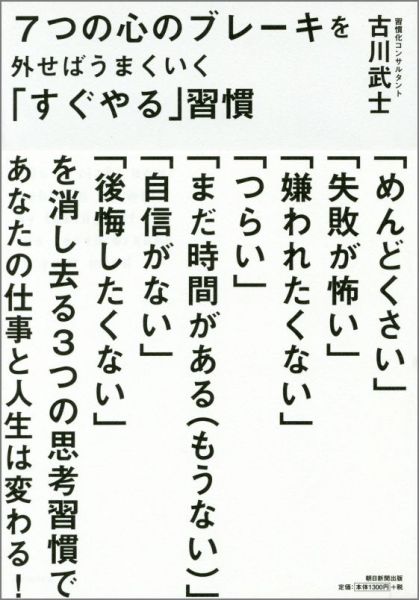 7つの心のブレーキを
外せばうまくいく
「すぐやる」習慣
習慣化コンサルタント
古川武士
「めんどくさい」
「失敗が怖い」
「嫌われたくない」
「つらい」
「まだ時間がある(もうない)」
「自信がない」
「後悔したくない」
を消し去る3つの思考習慣で
あなたの仕事と人生は変わる!
朝日新聞出版
定価:本体1300円+税